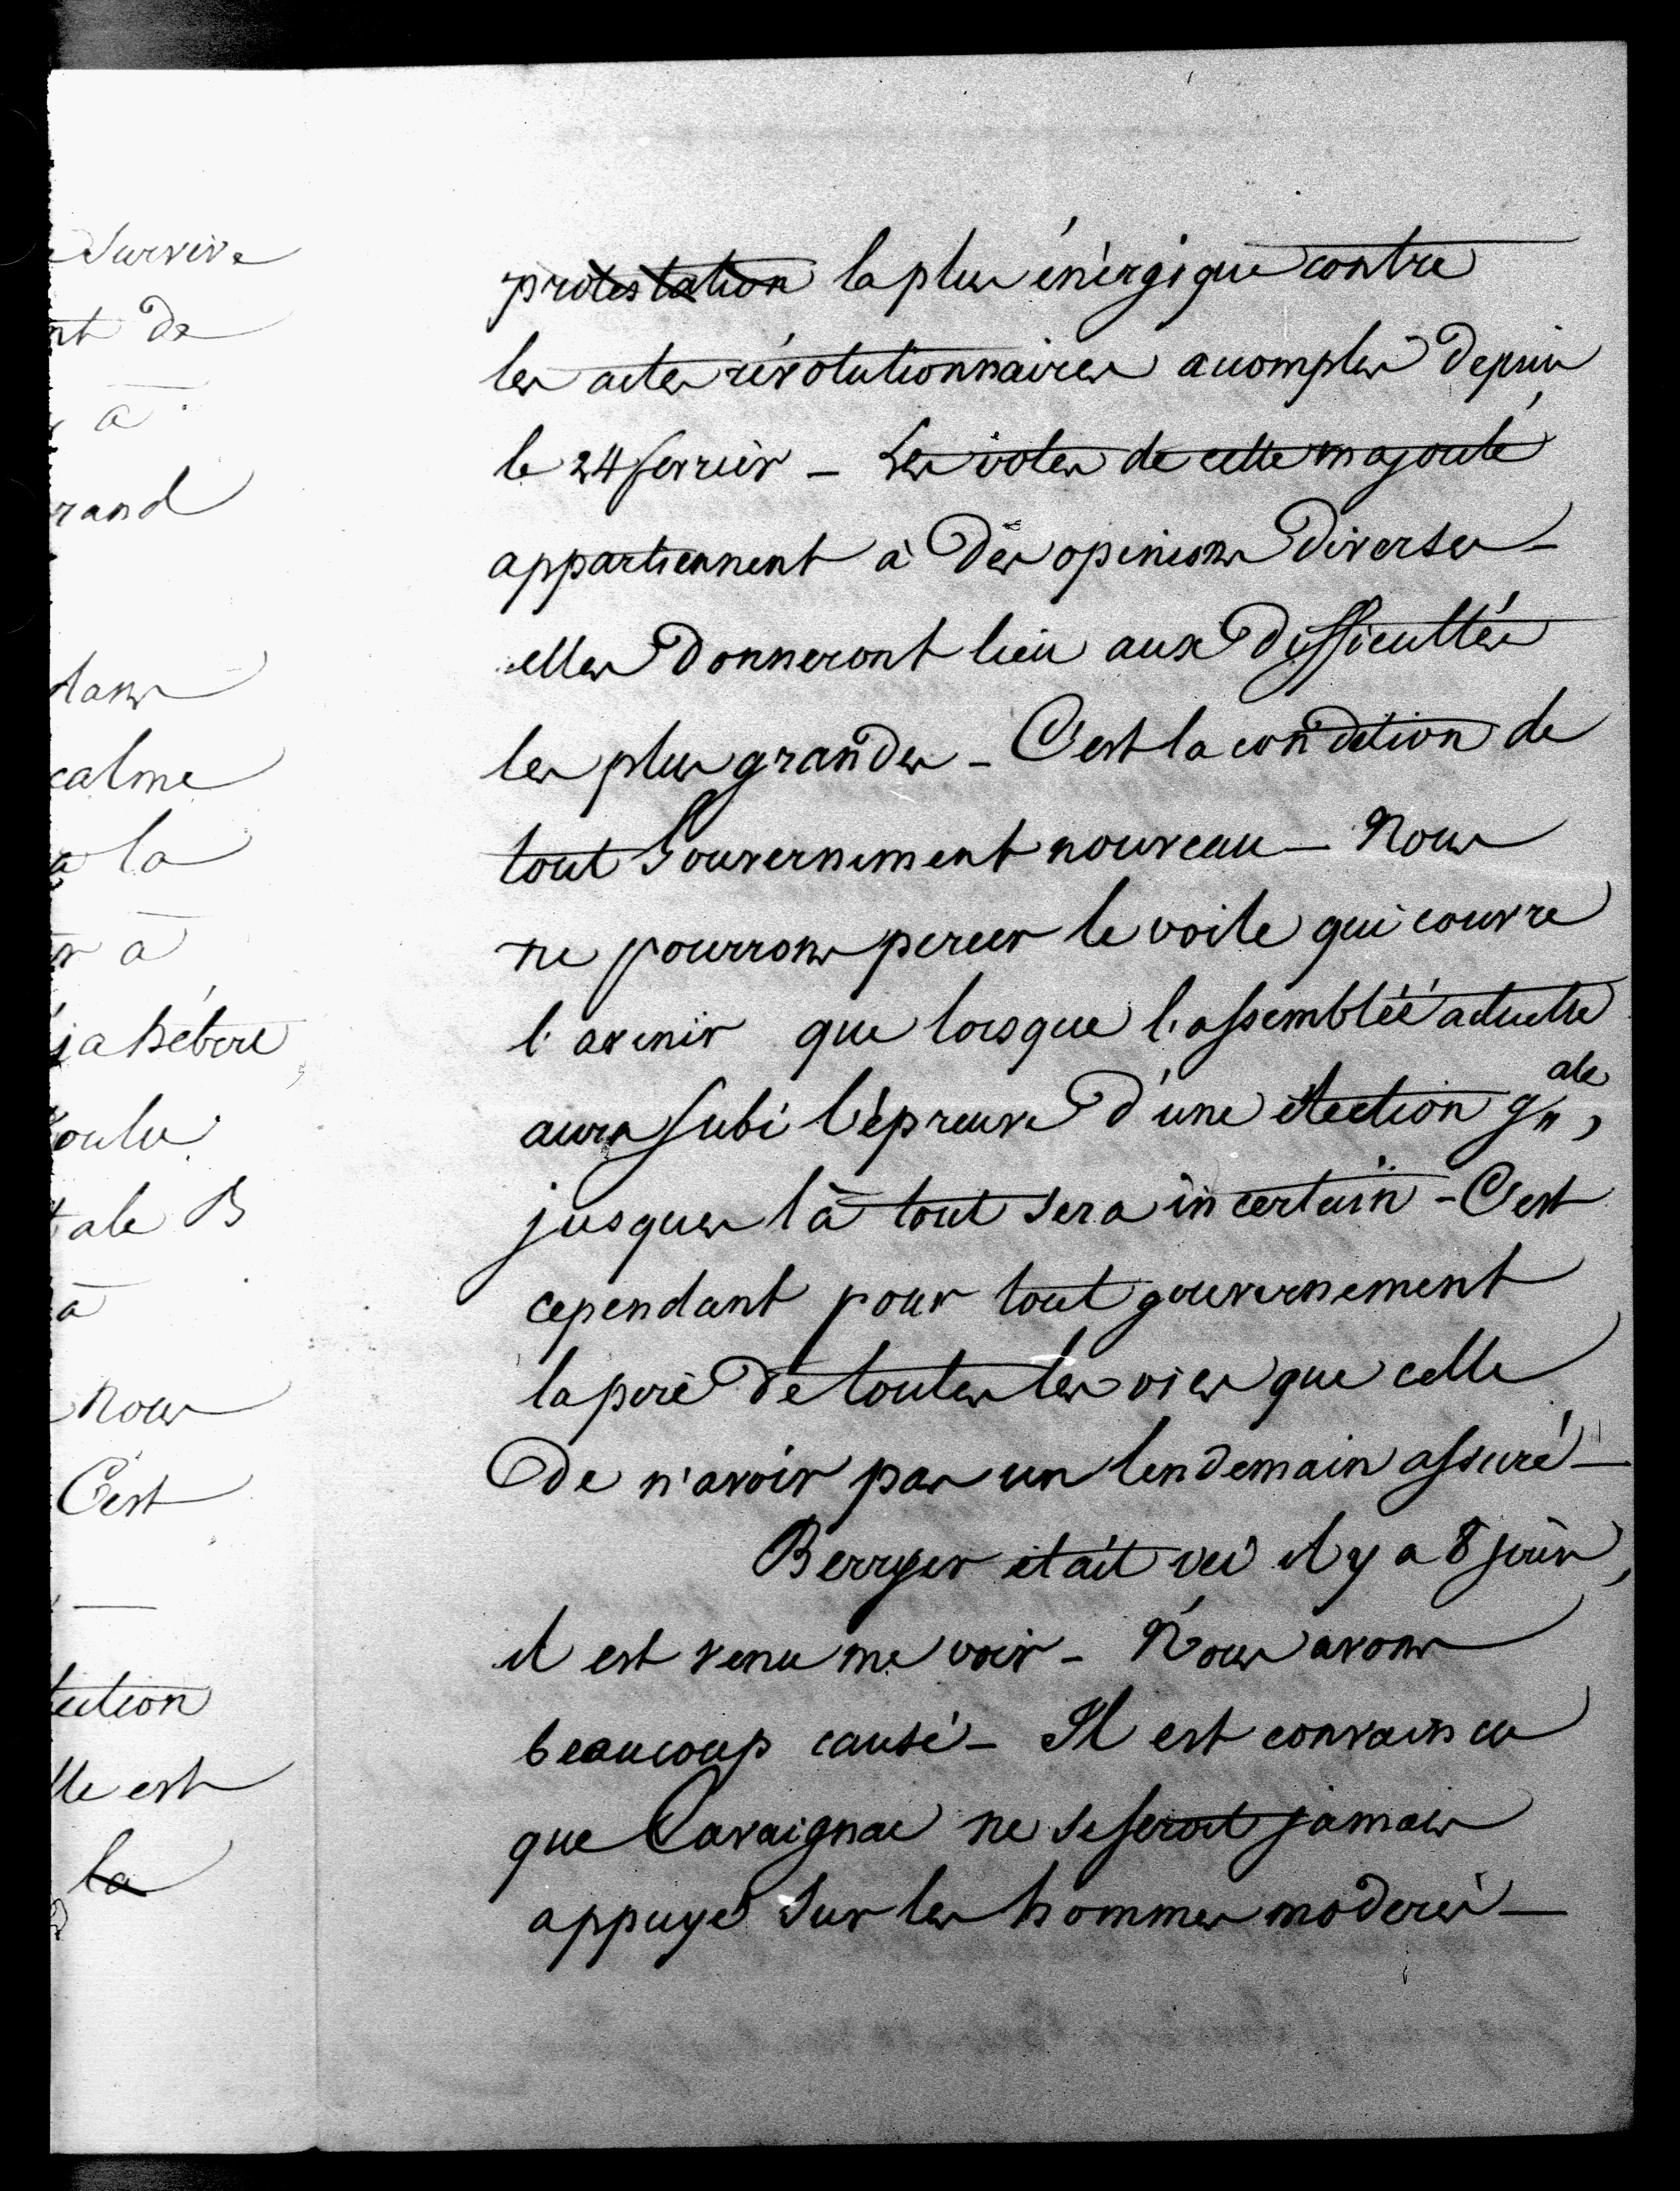 Survive
nt de
à
rand
dans
calme
a la
r à
voulu
tale B
à
nous
C'est
lection
lle est
la
protestation la plus énèrgique contre
les actes révolutionnaires accomplis depuis
le 24 fevrier - Les votes de cette majorité
appartiennent à des opinions diverses -
elles donneront lieu aux difficultés
les plus grandes - C'est la condition de
tout Gouvernement nouveau - Nous
ne pourrons percer le voile qui couvre
l'avenir que lorsque l'assemblée actuelle
aura subi l'épreuve d'une élection gnale,
jusques là tout sera incertain - C'est
cependant pour tout gouvernement
la pire de toutes les vies que celle
de n'avoir pas un lendemain assuré -
Berryer était ici il y a 8 jours,
il est venu me voir - Nous avons
beaucoup causé - Il est convaincu
que Cavaignac ne se seroit jamais
appuyé sur les hommes moderés -